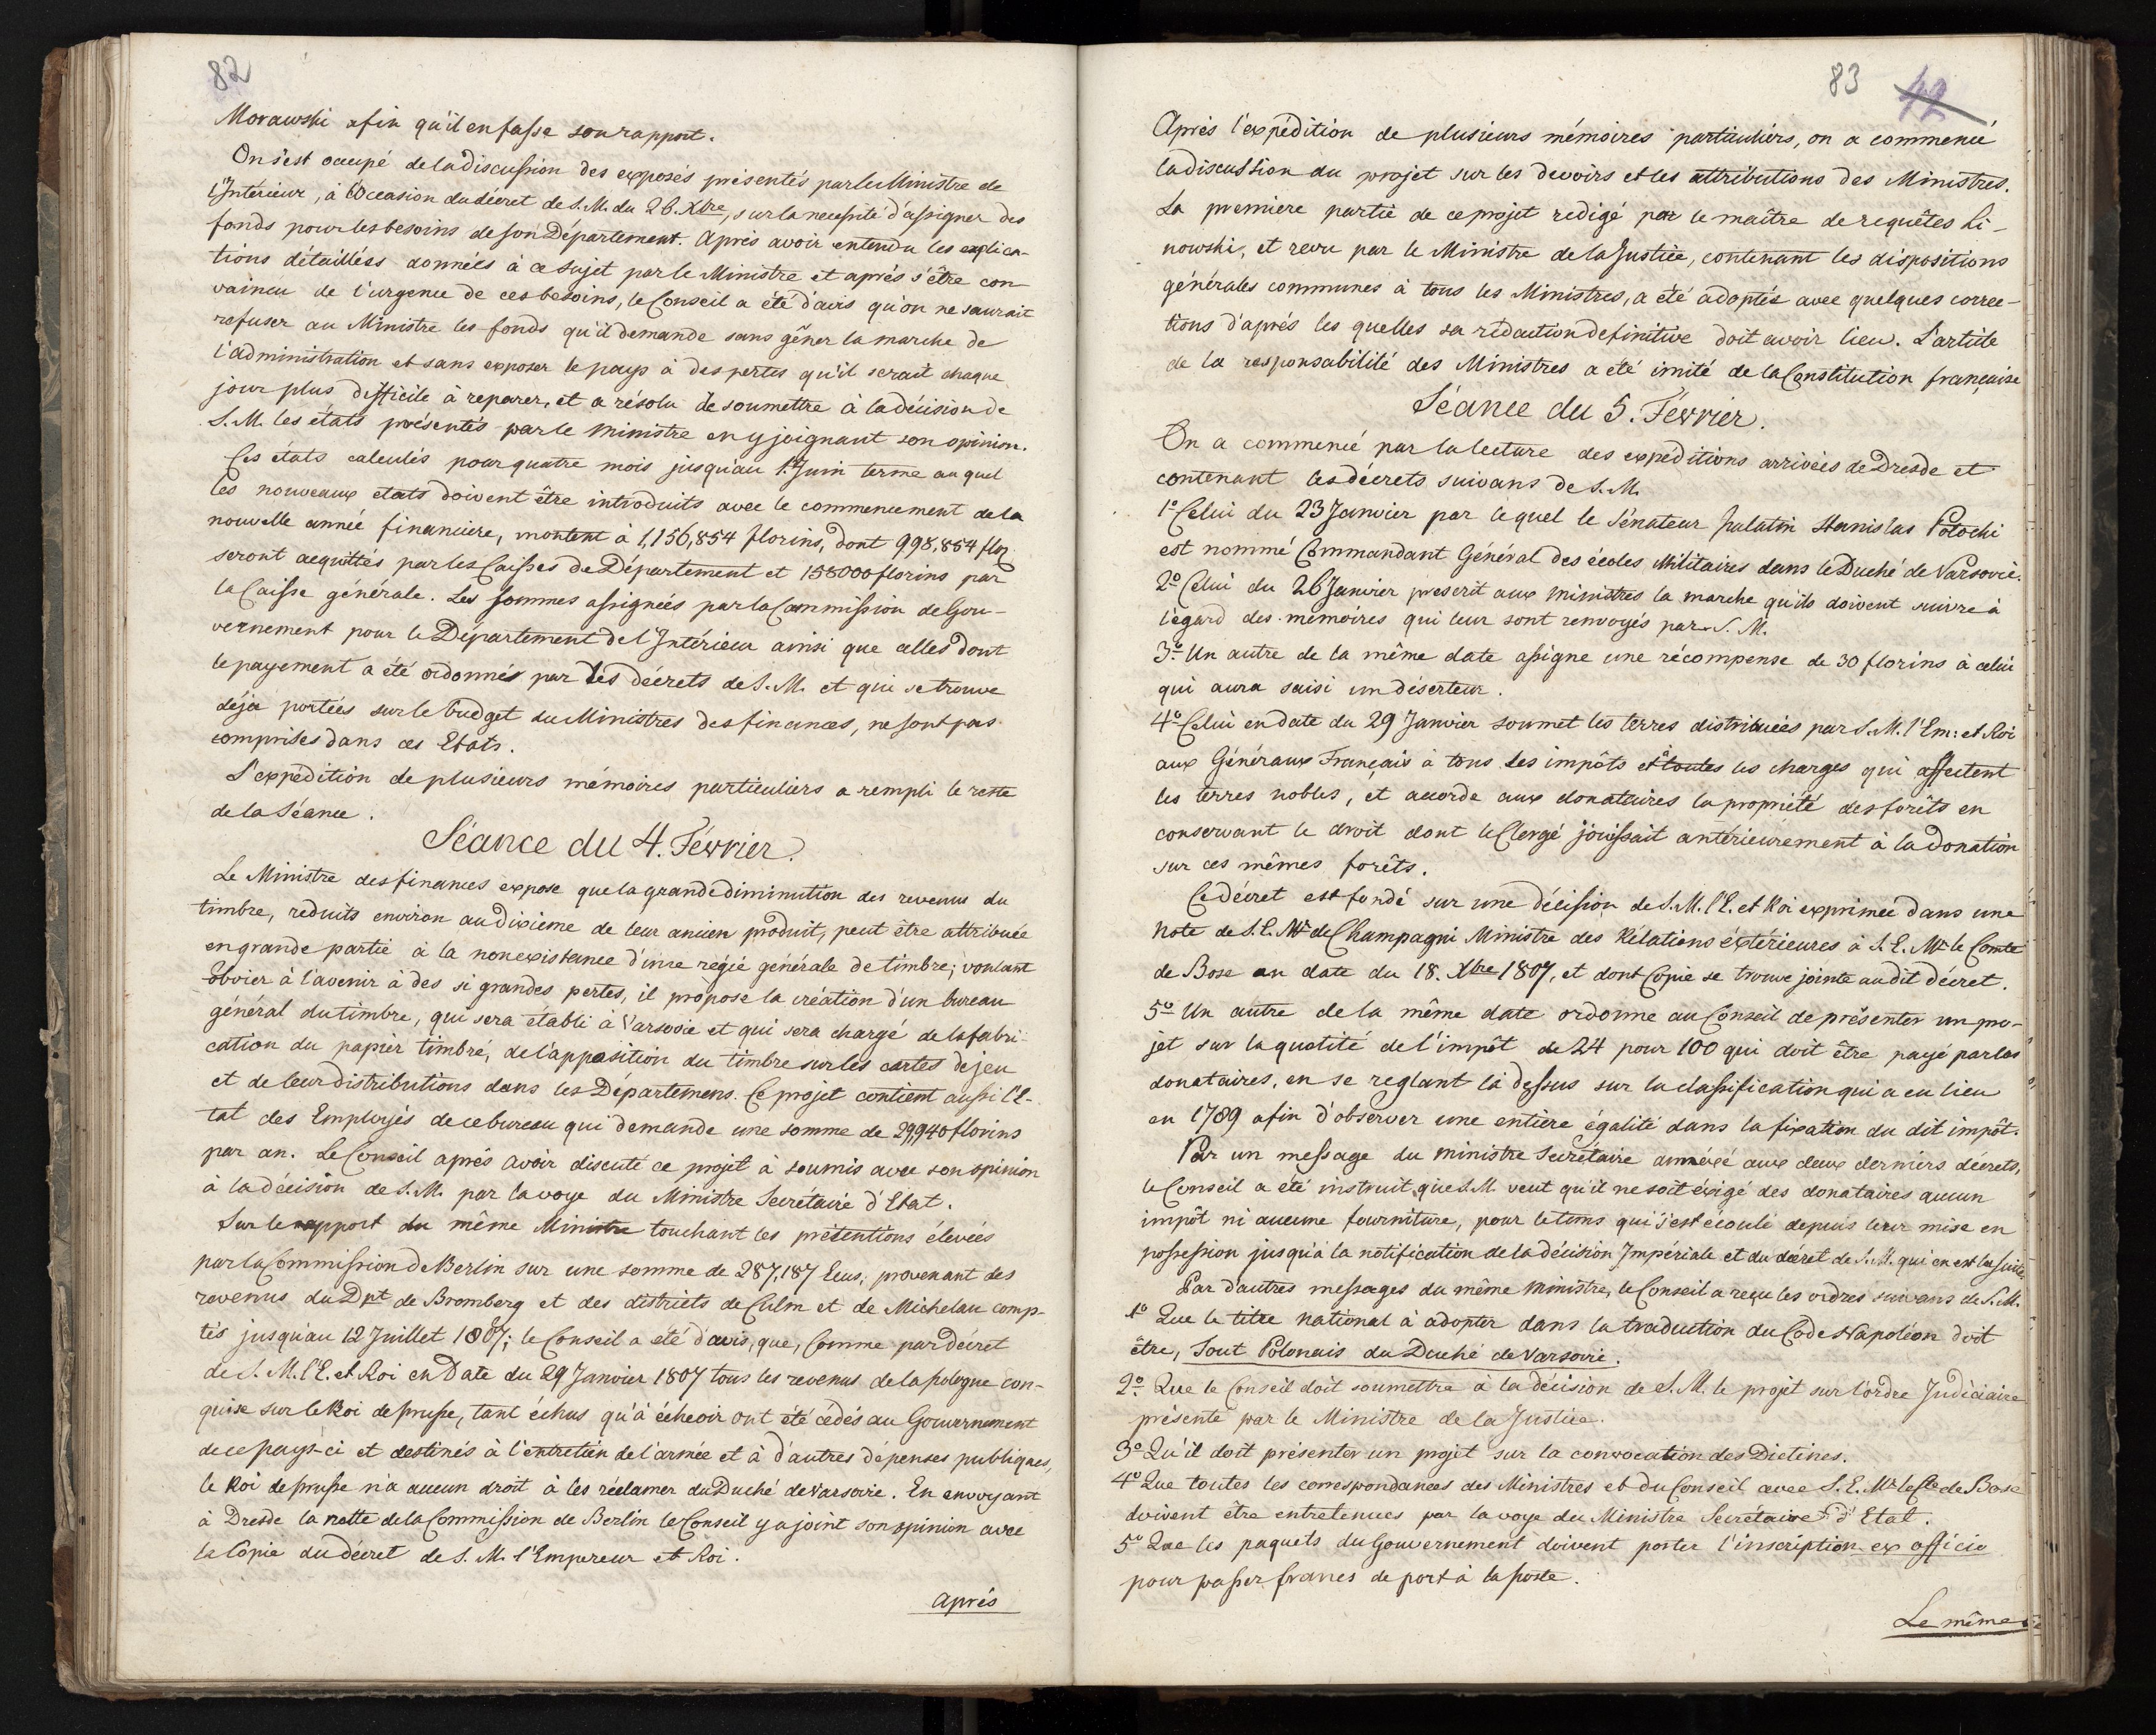 82
Morawski afin qu'il en fasse son rapport.
On s'est occupé de la discussion des exposés présentés par le Ministre de
l'Intérieur, à l'Occasion du décret de S. M. du 26. Xbre, sur la necessité d'assigner des
fonds pour les besoins de son Département. Après avoir entendu les explica-
tions détaillées données à ce sujet par le Ministre et après s'être con
vaincu de l'urgence de ces besoins, le Conseil a été d'avis qu'on ne saurait
refuser au Ministre les fonds qu'il demande sans gêner la marche de
l'administration et sans exposer le pays à des pertes qu'il serait chaque
jour plus difficile à reparer, et a résolu de soumettre à la décision de
S. M. les états présentés par le Ministre en y joignant son opinion.
Ces états calculés pour quatre mois jusqu'au 1r Juin terme au quel
les nouveaux etats doivent être introduits avec le commencement de la
nouvelle année financiere, montent à 1,156,854 florins, dont 998,854 flor
seront acquittés par les Caisses de Département et 158000 florins par
la Caisse générale. Les sommes assignées par la Commission de Gou-
vernement pour le Département de l'Intérieur ainsi que celles dont
le payement a été ordonnés par les décrets de S. M. et qui se trouve
déja portées sur le budget du Ministres des finances, ne sont pas
comprises dans ces Etats.
L'expédition de plusieurs mémoires particuliers a rempli le reste
de la Séance.
Séance du 4. Février.
Le Ministre des finances expose que la grande diminution des revenus du
timbre, reduits environ au dixieme de leur ancien produit, peut être attribuée
en grande partie à la non existance d'une regie générale de timbre; voulant
obvier à l'avenir à des si grandes pertes, il propose la création d'un bureau
général du timbre, qui sera établi à Varsovie et qui sera chargé de la fabri-
cation du papier timbré, de l'apposition du timbre sur les cartes de jeu
et de leur distributions dans les Départemens. Ce projet contient aussi l'E-
tat des Employés de ce bureau qui demande une somme de 29,940 florins
par an. Le Conseil après avoir discuté ce projet à soumis avec son opinion
à la décision de S. M. par la voye du Ministre Secrétaire d'Etat.
Sur le rapport du même Ministre touchant les prétentions élevées
par la Commission de Berlin sur une somme de 287,187 Ecus, provenant des
revenus du Dpt de Bromberg et des districts de Culm et de Michelau comp-
tés jusqu'au 12 Juillet 1807; le Conseil a été d'avis, que, comme par décret
de S. M. l'E. et Roi en Date du 29 Janvier 1807 tous les revenus de la pologne con-
quise sur le Roi de prusse, tant échus qu'à écheoir ont été cédés au Gouvernement
de ce pays-ci et destinés à l'entretien de l'armée et à d'autres dépenses publiques,
le Roi de prusse n'a aucun droit à les réclamer du Duché de Varsovie. En envoyant
à Dresde la notte de la Commission de Berlin le Conseil y a joint son opinion avec
la Copie du décret de S. M. l'Empereur et Roi.
après
83 42
Après l'expédition de plusieurs mémoires particuliers, on a commencé
la discussion du projet sur les devoirs et les attributions des Ministres.
La premiere partie de ce projet redigé par le maître de requêtes Li-
nowski, et revu par le Ministre de la Justice, contenant les dispositions
générales communes à tous les Ministres, a été adoptée avec quelques correc-
tions d'après les quelles sa rédaction definitive doit avoir lieu. L'article
de la responsabilité des Ministres a été imité de la Constitution française
Séance du 5. Février.
On a commencé par la lecture des expéditions arrivées de Dresde et
contenant les décrets suivans de S. M.
1o Celui du 23 Janvier par le quel le Sénateur palatin Stanislas Potocki
est nommé Commandant Général des écoles Militaires dans le Duché de Varsovie.
2o Celui du 26 Janvier prescrit aux ministres la marche qu'ils doivent suivre à
l'egard des mémoires qui leur sont renvoyés par S. M.
3o Un autre de la même date assigne une récompense de 30 florins à celui
qui aura saisi un déserteur.
4o Celui en date du 29 Janvier soumet les terres distribuées par S. M. l'Em: et Roi
aux Généraux Français à tous les impôts et à toutes les charges qui affectent
les terres nobles, et accorde aux donataires la propriété des forêts en
conservant le droit dont le Clergé jouissait antérieurement à la donation
sur ces mêmes forêts.
Ce décret est fondé sur une décision de S. M. l'E. et Roi exprimée dans une
note de S. E. Mr de Champagni Ministre des Rélations éxtérieures à S. E. Mr le Comte
de Bose en date du 18. Xbre 1807, et dont Copie se trouve jointe au dit décret.
5o Un autre de la même date ordonne au Conseil de présenter un pro-
jet sur la quotité de l'impôt de 24 pour 100 qui doit être payé par les
donataires, en se reglant là dessus sur la classification qui a eu lieu
en 1789 afin d'observer une entière égalité dans la fixation du dit impôt.
Par un message du ministre Secrétaire annéxé aux deux derniers décrets,
le Conseil a été instruit que S. M. veut qu'il ne soit éxigé des donataires aucun
impôt ni aucune fourniture, pour le tems qui s'est écoulé depuis leur mise en
possession jusqu'à la notification de la décision Impériale et du décret de S. M. qui en est la suite.
Par d'autres messages du même Ministre, le Conseil a reçu les ordres suivans de S. M.
1o Que le titre national à adopter dans la traduction du Code Napoléon doit
être, Tout Polonais du Duché de Varsovie.
2o Que le Conseil doit soumettre à la décision de S. M. le projet sur l'ordre Judiciaire
présenté par le Ministre de la Justice.
3o Qu'il doit présenter un projet sur la convocation des Dietines.
4o Que toutes les correspondances des Ministres et du Conseil avec S. E. Mr le Cte de Bose
doivent être entretenues par la voye du Ministre Secrétaire d'Etat.
5o Que les paquets du Gouvernement doivent porter l'inscription ex officio
pour passer francs de port à la poste.
Le même